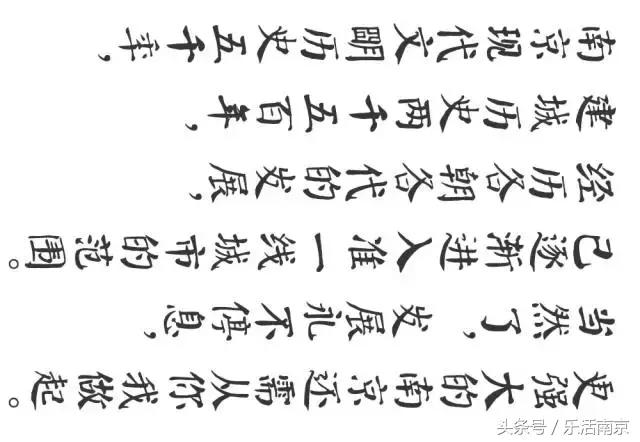 南京现代文明历史五千年，
建城历史两千五百年，
经历各朝各代的发展，
已逐渐进入准一线城市的范围。
当然了，发展永不停息，
更强大的南京还需从你我做起。
头条号 / 乐活南京